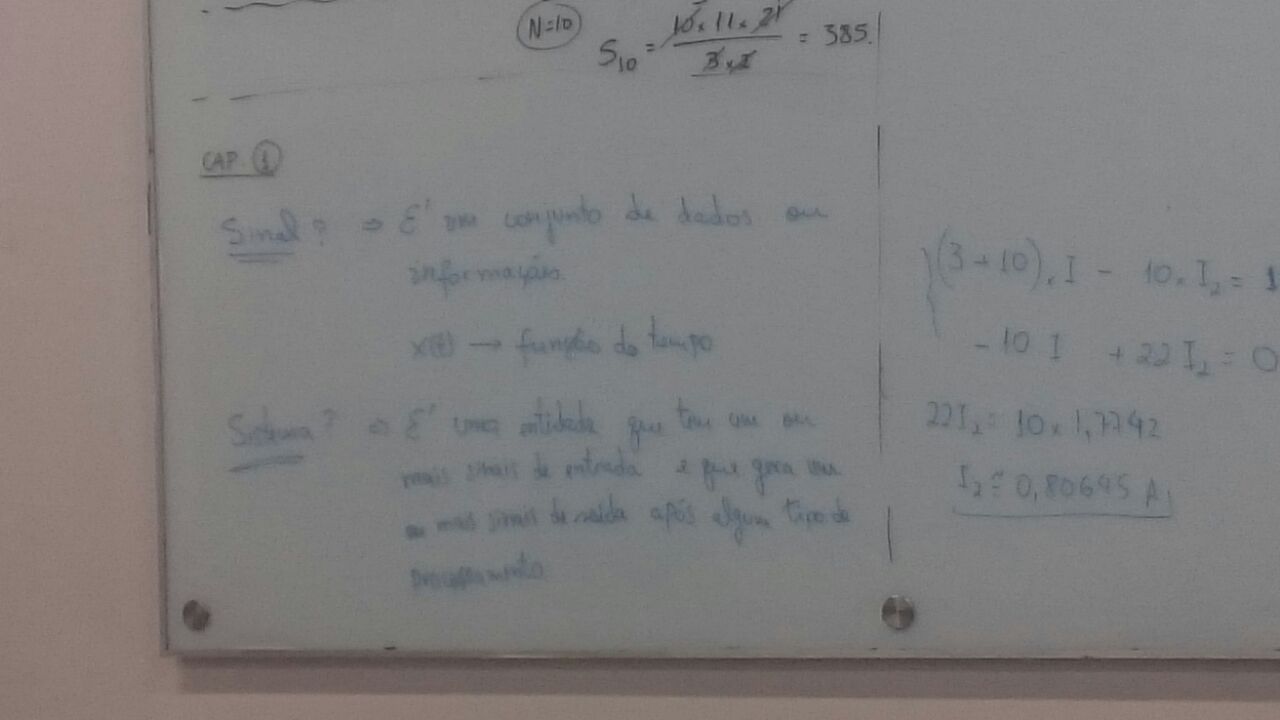 N=10
S10 = 10 x 11 x 21 / 3 x 2 = 385.
CAP. 1
Sinal? ⇒ É um conjunto de dados ou
informação.
x(t) → função do tempo
Sistema? ⇒ É uma entidade que tem um ou
mais sinais de entrada e que gera um
ou mais sinais de saída após algum tipo de
processamento
(3+10).I - 10.I2 = 1
-10 I + 22 I2 = 0
22I2 = 10 x 1,7742
I2 = 0,80645 A